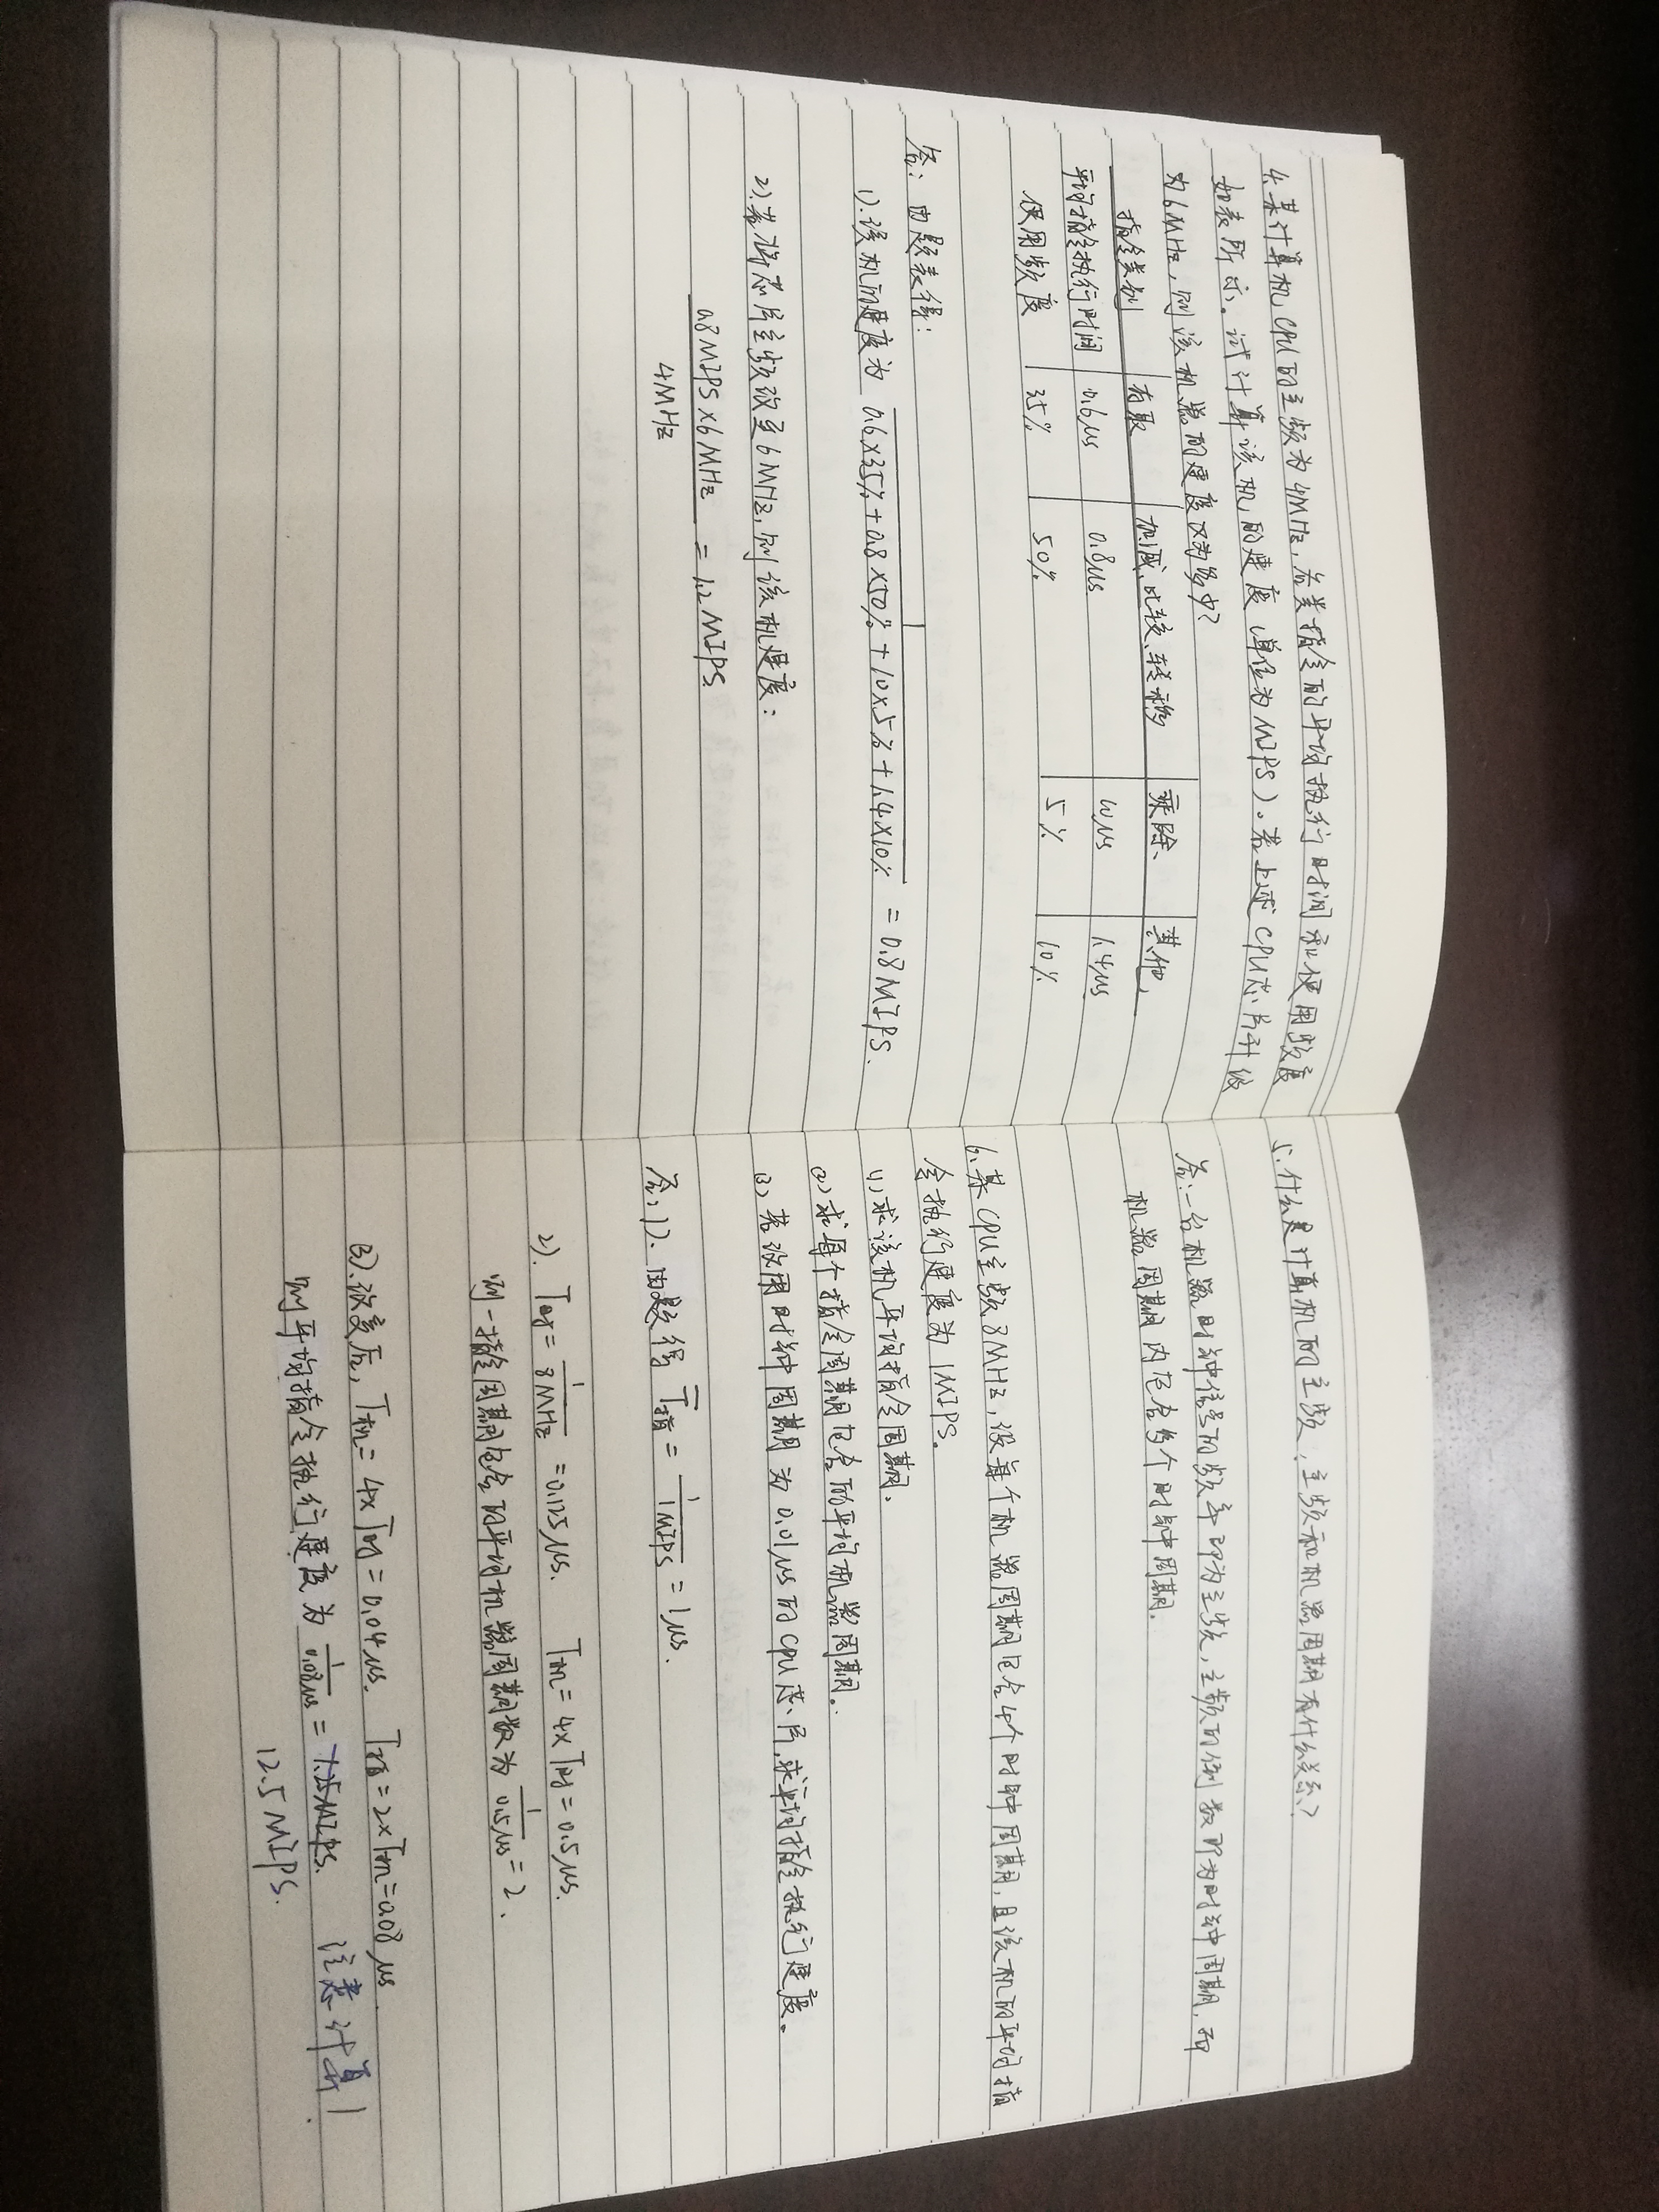 4.某计算机CPU的主频为4MHz,各类指令的平均执行时间和使用频度
如表所示。试计算该机的速度(单位为MIPS)。若上述CPU芯片升级
为6MHz,则该机器的速度又为多少?
指令类别 存取 加减、比较、转移 乘除、 其他、
平均指令执行时间 0.6μs 0.8μs 10μs 1.4μs
使用频度 35% 50% 5% 10%
答:由题表得:
1).该机的速度为 1/(0.6×35%+0.8×50%+10×5%+1.4×10%) = 0.8MIPS.
2).若将芯片主频改至6MHz,则该机速度:
0.8MIPS×6MHz/4MHz = 1.2MIPS
5.什么是计算机的主频,主频和机器周期有什么关系?
答:一台机器时钟信号的频率即为主频,主频的倒数即为时钟周期,而
机器周期内包含多个时钟周期.
6.某CPU主频8MHz,设每个机器周期包含4个时钟周期,且该机的平均指
令执行速度为1MIPS。
(1)求该机平均指令周期.
(2)求每个指令周期包含的平均机器周期.
(3)若改用时钟周期为0.01μs的CPU芯片,求平均指令执行速度。
答:1).由题得 T指 = 1/1MIPS = 1μs.
2). T时 = 1/8MHz = 0.125μs. T机 = 4×T时 = 0.5μs.
则一指令周期包含的平均机器周期数为 1/0.5μs = 2.
3).改变后,T机 = 4×T时 = 0.04μs. T指 = 2×T机 = 0.08μs
则平均指令执行速度为 1/0.08μs = 1.25MIPS. 注意计算!
12.5MIPS.